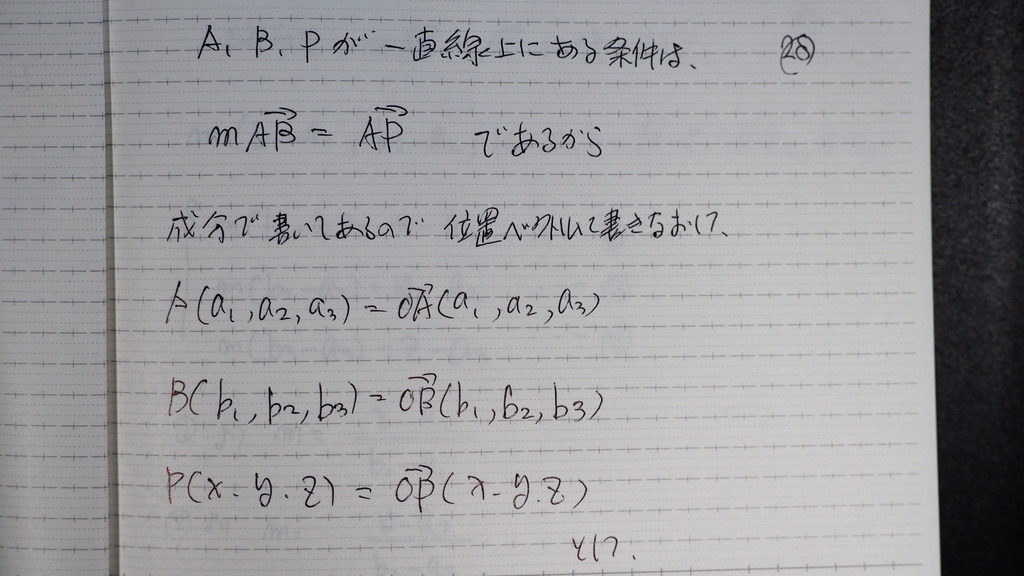 A, B, Pが一直線上にある条件は、 ㉘
mAB→ = AP→ であるから
成分で書いてあるので 位置ベクトルで書きなおして、
A(a₁, a₂, a₃) = OA→(a₁, a₂, a₃)
B(b₁, b₂, b₃) = OB→(b₁, b₂, b₃)
P(x. y. z) = OP→(x. y. z)
として.